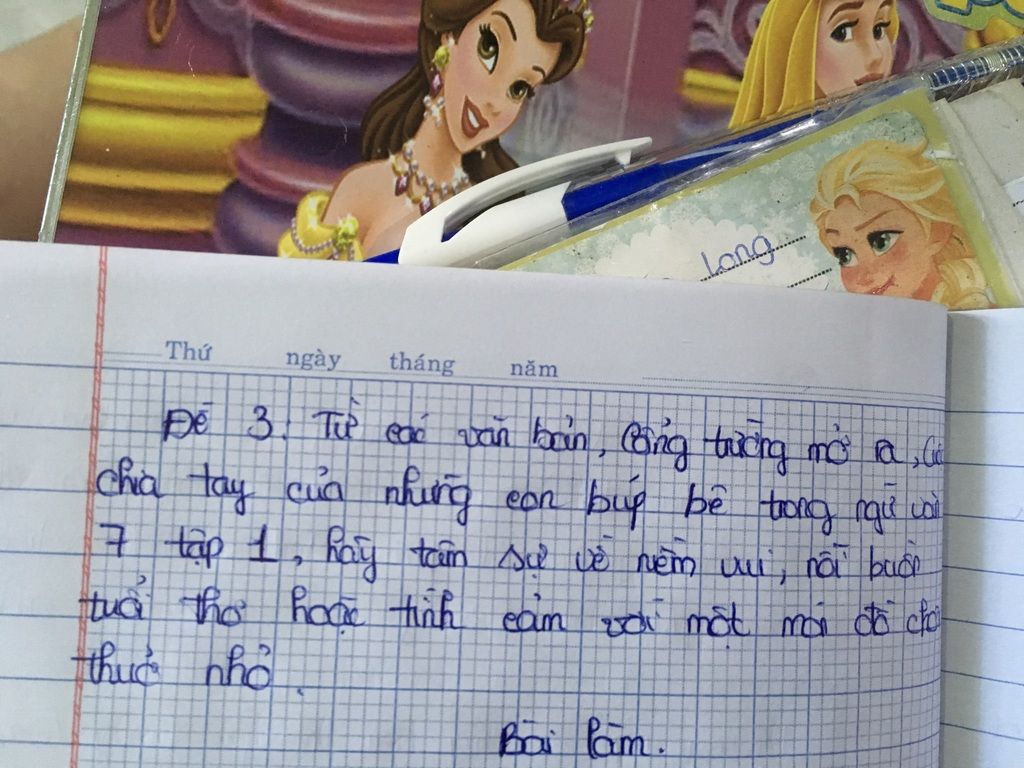 Long
Thứ ngày tháng năm
Đề 3. Từ các văn bản, Cổng trường mở ra, Cuộc
chia tay của những con búp bê trong ngữ văn
7 tập 1, hãy tâm sự về niềm vui, nỗi buồn
tuổi thơ hoặc tình cảm với một mói đồ chơi
thuở nhỏ.
Bài làm.